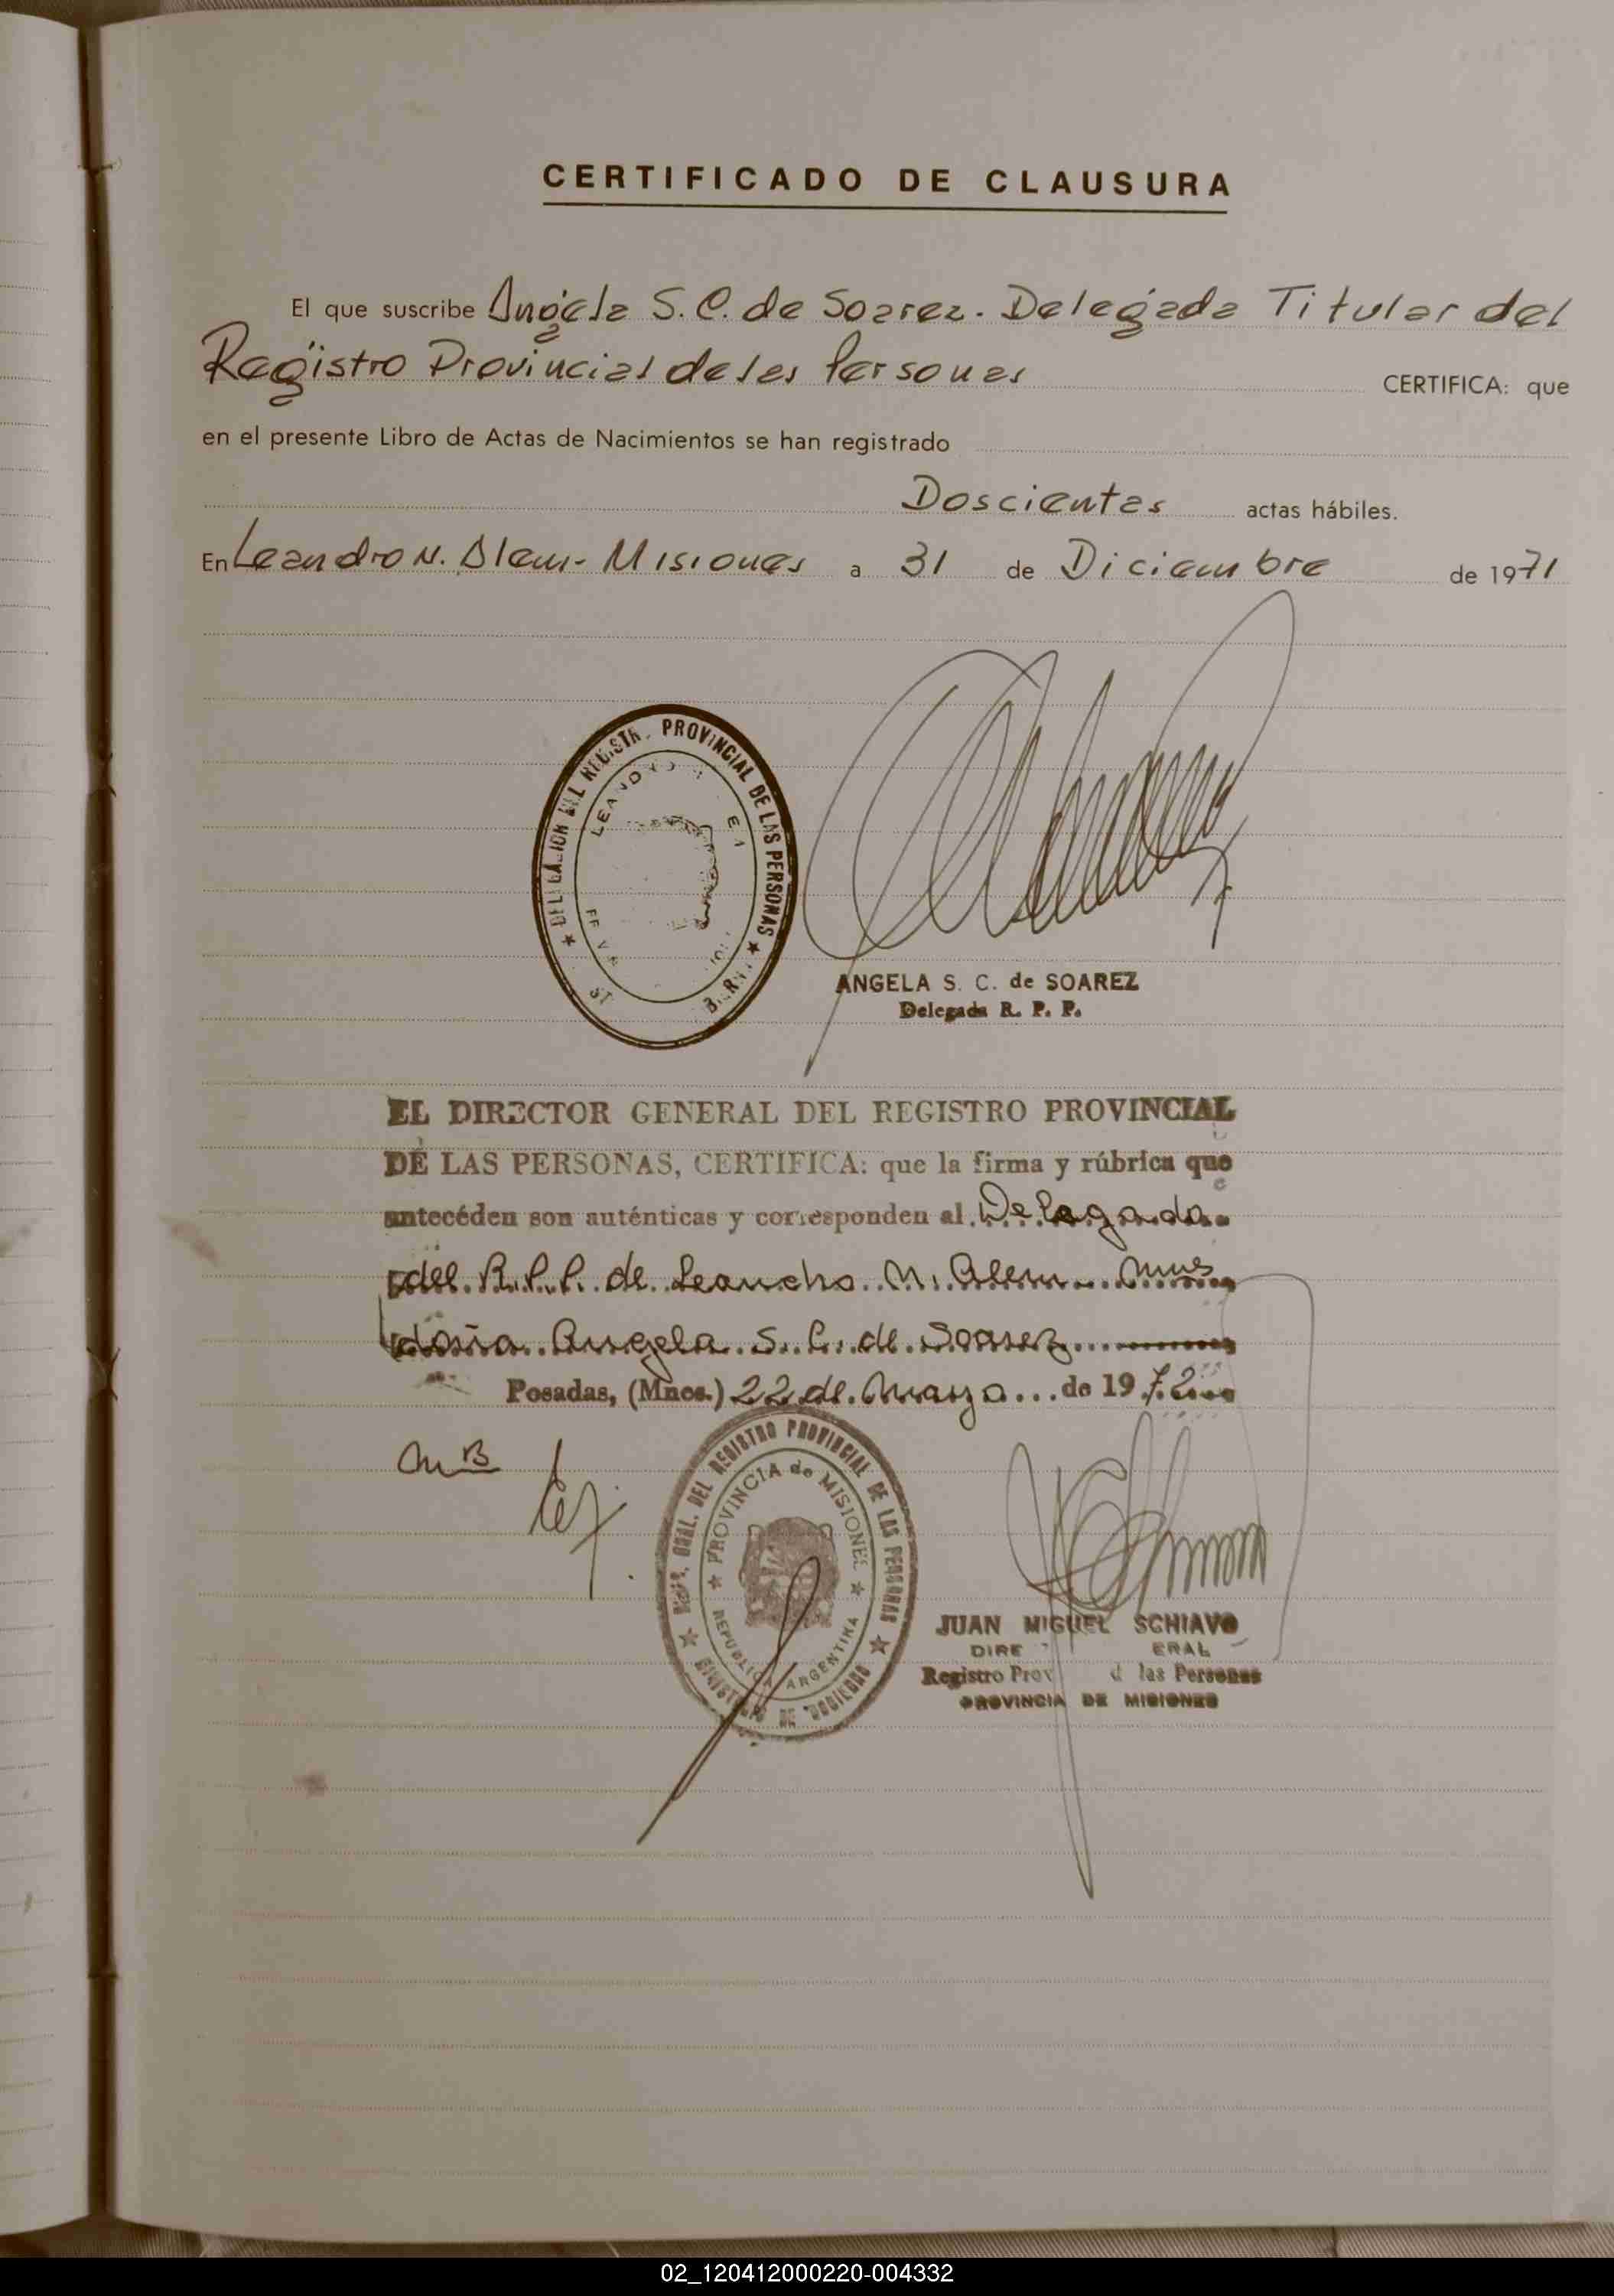 CERTIFICADO DE CLAUSURA
El que suscribe Angela S. C. de Soarez. Delegada Titular del
Registro Provincial de las Personas CERTIFICA: que
en el presente Libro de Actas de Nacimientos se han registrado
Doscientas actas hábiles.
En Leandro N. Alem - Misiones a 31 de Diciembre de 1971
PROVINCIAL DE LAS PERSONAS
ANGELA S. C. de SOAREZ
Delegada R. P. P.
EL DIRECTOR GENERAL DEL REGISTRO PROVINCIAL
DE LAS PERSONAS, CERTIFICA: que la firma y rúbrica que
antecéden son auténticas y corresponden al Delegada
del R.P.P. de Leandro N. Alem Mnes
doña Angela S. C. de Soarez
Posadas, (Mnes.) 22 de Marzo de 1972
DIR. GRAL. DEL REGISTRO PROVINCIAL DE LAS PERSONAS
PROVINCIA de MISIONES
REPUBLICA ARGENTINA
MINISTERIO DE GOBIERNO
JUAN MIGUEL SCHIAVO
Registro Prov las Personas
PROVINCIA DE MISIONES
02_120412000220-004332